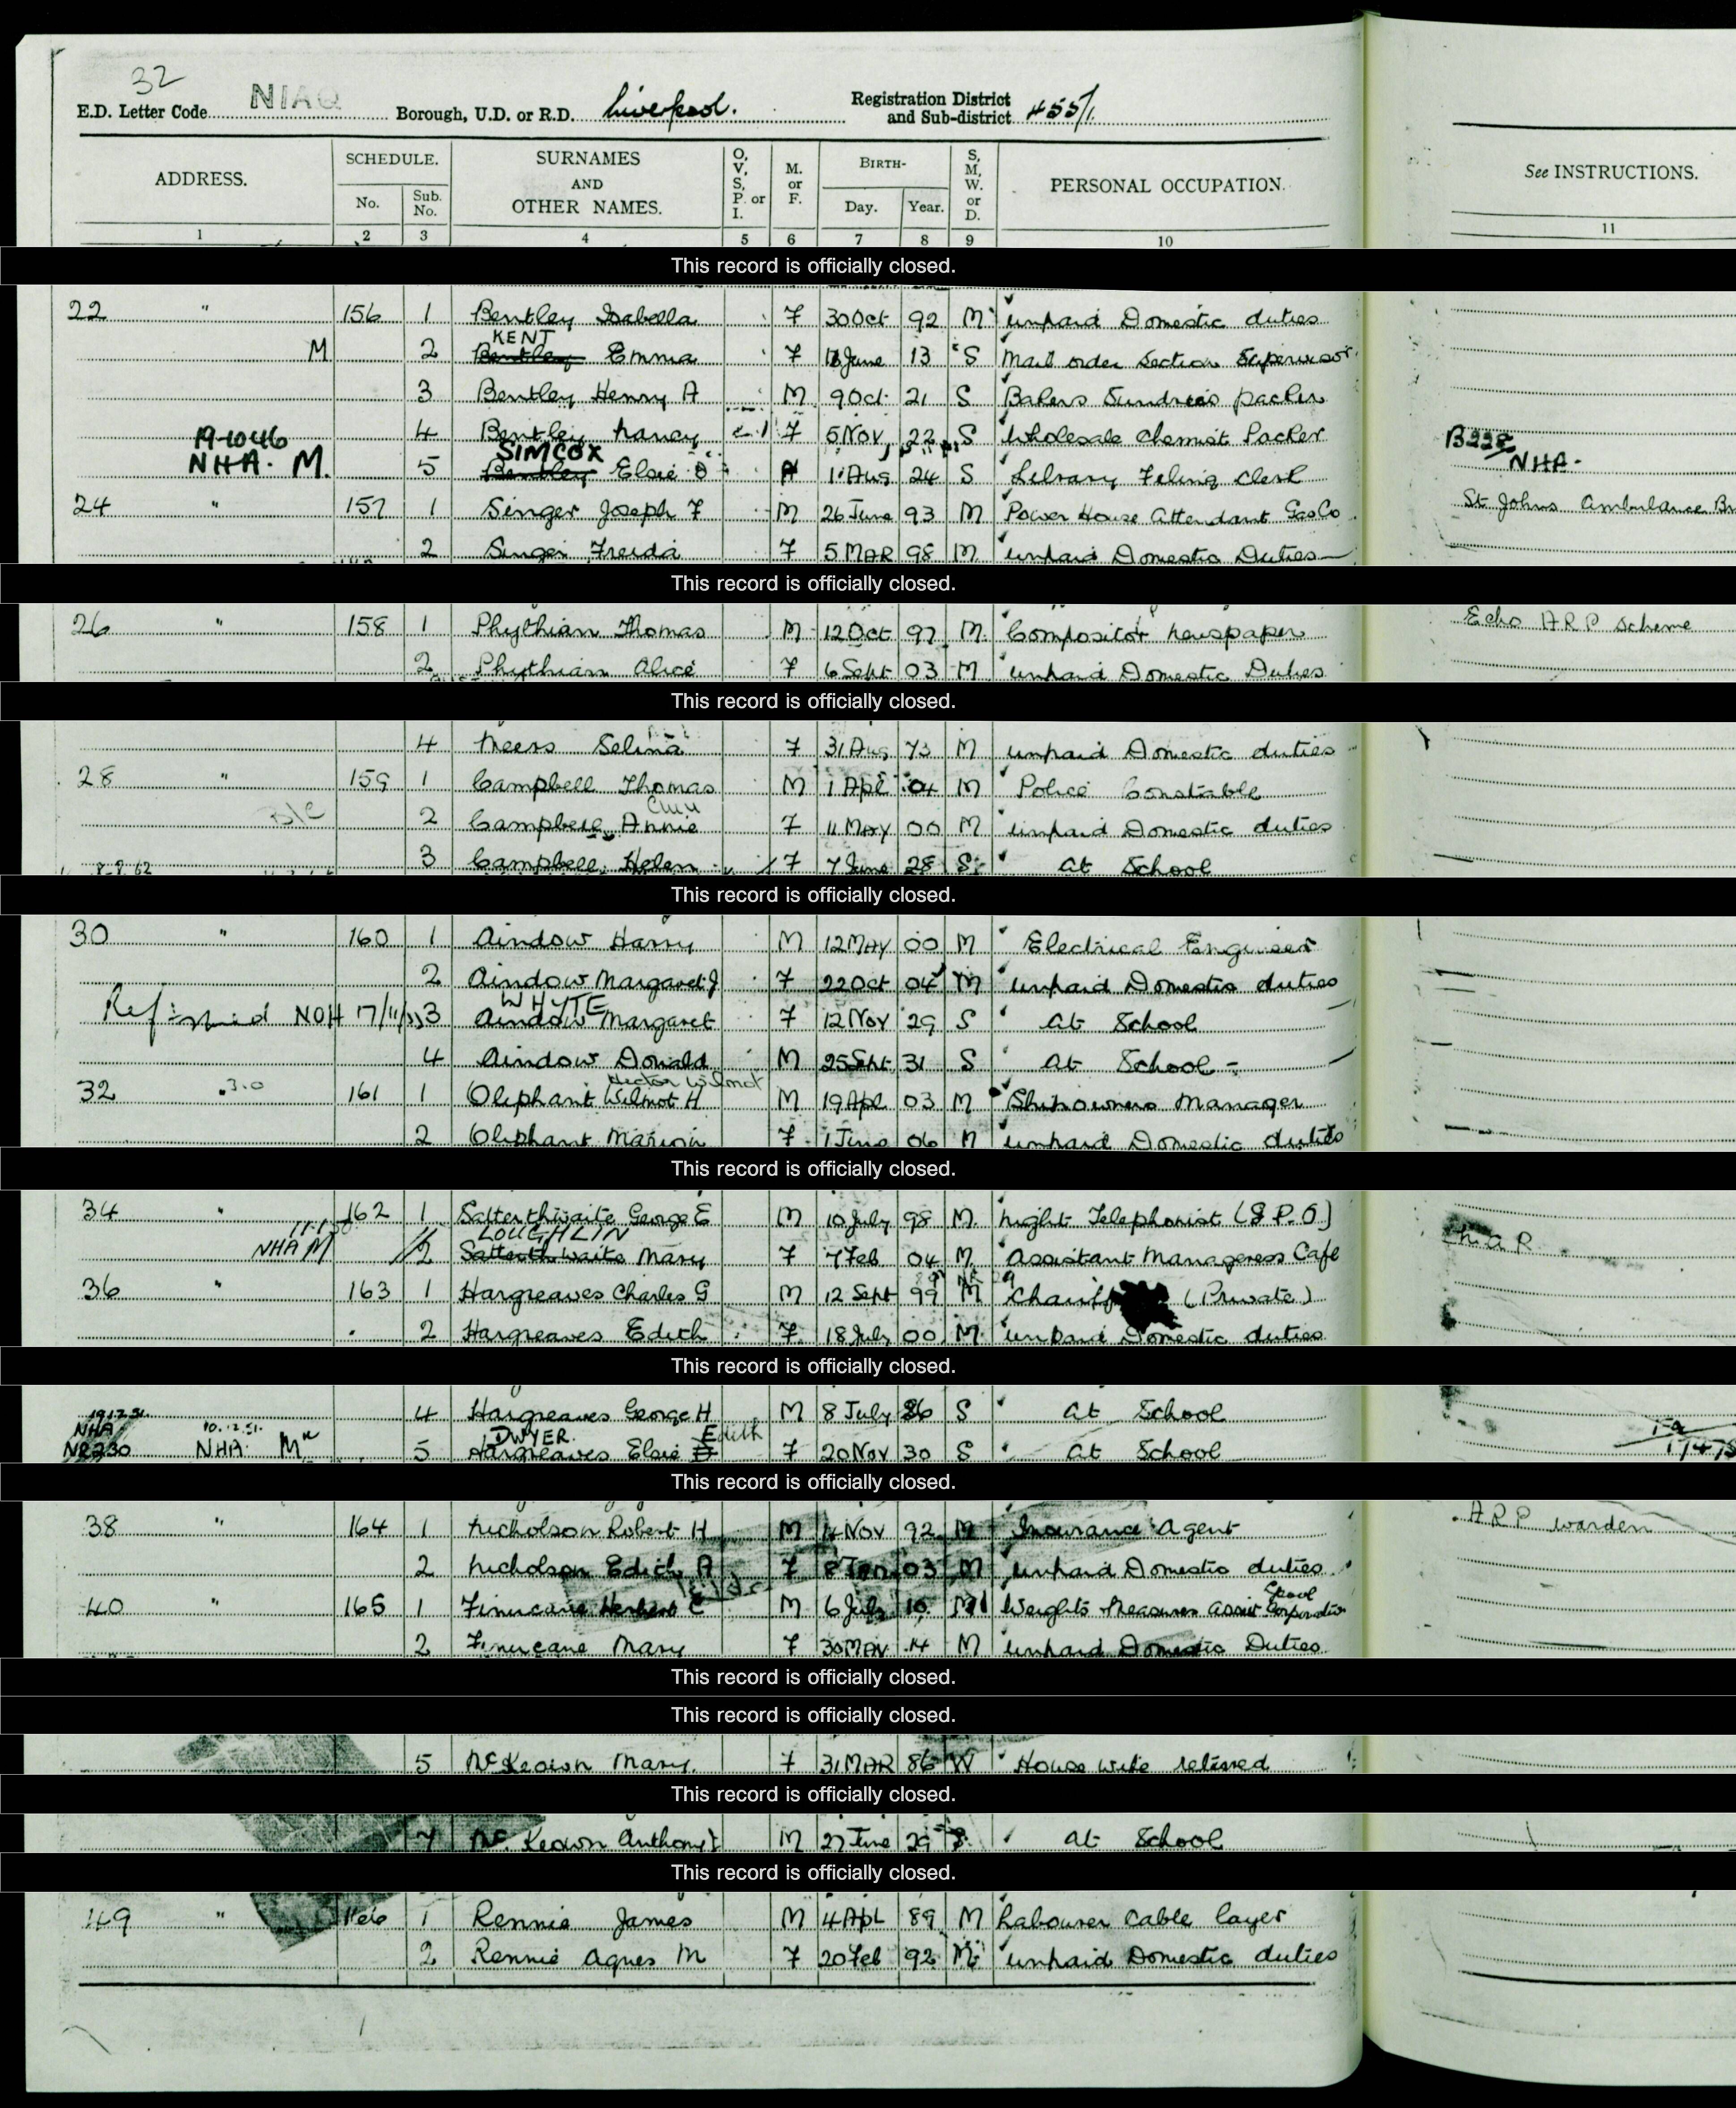 32
E.D. Letter Code NIAQ Borough, U.D. or R.D. Liverpool. Registration District and Sub-district 455/1.
ADDRESS. SCHEDULE. No. Sub. No. SURNAMES AND OTHER NAMES. O, V, S, P. or I. M. or F. BIRTH- Day. Year. S, M, W. or D. PERSONAL OCCUPATION. See INSTRUCTIONS.
1 2 3 4 5 6 7 8 9 10 11
This record is officially closed.
22 " 156 1 Bentley Isabella F 30 Oct 92 M unpaid Domestic duties
KENT
M 2 Bentley Emma F June 13 S Mail order Section Supervisor
3 Bentley Henry A M 9 Oct 21 S Bakers Sundries packer
19-10-46 4 Bentley Nancy F 5 Nov 22 S Wholesale Chemist Packer B228
SIMCOX
NHA. M. 5 Bentley Elsie 1 Aug 24 S Library Filing Clerk NHA.
24 " 157 1 Singer Joseph F M 26 June 93 M Power House Attendant Gas Co St Johns Ambulance Br
2 Singer Freida F 5 MAR 98 M unpaid Domestic Duties
This record is officially closed.
26 " 158 1 Phythian Thomas M 12 Oct 97 M. Compositor newspaper Echo ARP Scheme
2 Phythian Alice F 6 Sept 03 M unpaid Domestic Duties
This record is officially closed.
4 Neers Selina F 31 Aug 73 M unpaid Domestic duties
28 " 159 1 Campbell Thomas M 1 Apl 04 M Police Constable
B/C 2 Campbell Annie F 11 May 00 M unpaid Domestic duties
8-8-62 3 Campbell Helen F 7 June 28 S at School
This record is officially closed.
30 " 160 1 Aindow Harry M 12 MAY 00 M Electrical Engineer
2 Aindow Margaret J F 22 Oct 04 M unpaid Domestic duties
WHYTE
NOH 17/11/ 3 Aindow Margaret F 12 Nov 29 S at School
4 Aindow Donald M 25 Sept 31 S at School
Hector Wilmot
32 161 1 Oliphant Wilmot H M 19 Apl 03 M Shipowners Manager
2 Oliphant Marion F 1 June 06 M unpaid Domestic duties
This record is officially closed.
34 " 162 1 Satterthwaite George E M 10 July 98 M. night Telephonist (G.P.O)
LOUGHLIN
NHA M 2 Satterthwaite Mary F 7 Feb 04 M. Assistant Manageress Cafe
36 " 163 1 Hargreaves Charles G M 12 Sept 99 M (Private)
2 Hargreaves Edith F 18 July 00 M unpaid Domestic duties
This record is officially closed.
4 Hargreaves George H M 8 July S at School
NHA 10.12.51. DWYER. Edith
NR230 NHA 5 Hargreaves Elsie E F 20 Nov 30 S at School
This record is officially closed.
38 " 164 1 Nicholson Robert H M Nov 92 M Insurance Agent ARP warden
2 Nicholson Edith A F 8 Jan 03 M unpaid Domestic duties
40 " 165 1 Finucane Herbert E M 6 July 10 M Weights Measures Assist Corporation
2 Finucane Mary F 30 MAY 14 M unpaid Domestic Duties
This record is officially closed.
This record is officially closed.
5 McKeown Mary F 31 MAR 86 W House wife retired
This record is officially closed.
7 McKeown Anthony M 27 June 29 S. at School
This record is officially closed.
49 " 166 1 Rennie James M 4 Apl 89 M Labourer Cable layer
2 Rennie Agnes M F 20 Feb 92 M unpaid Domestic duties